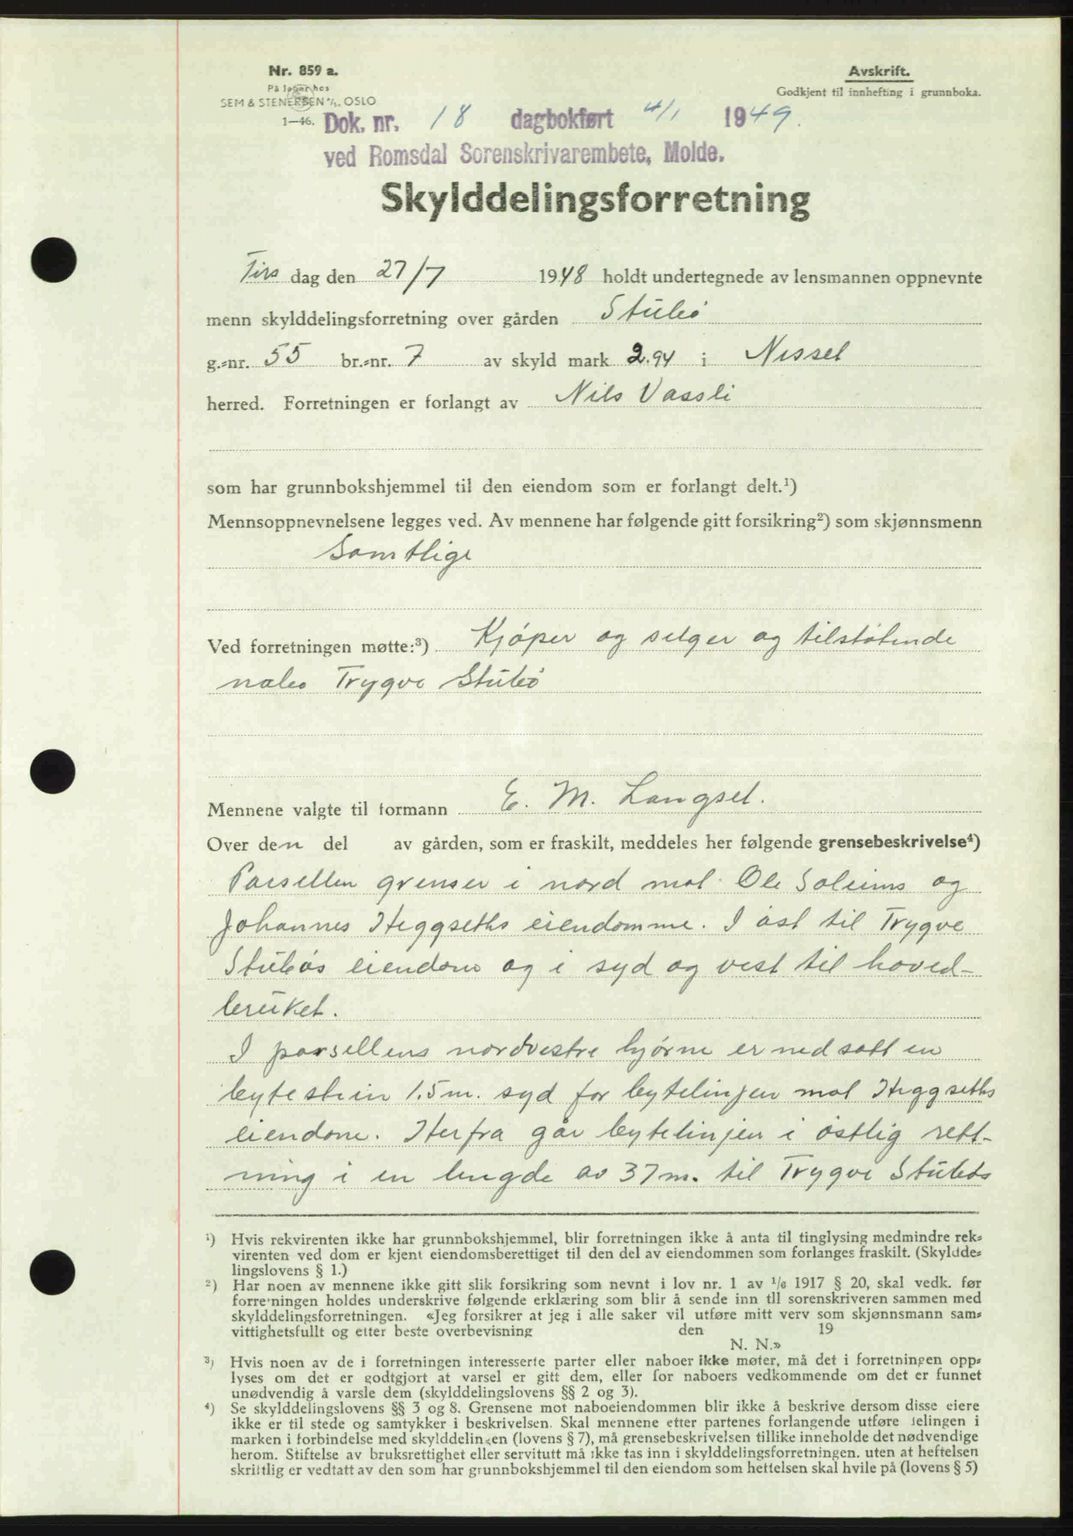 Nr. 859 a.
På lager hos
SEM & STENERSEN A/S, OSLO
1—46.
Avskrift.
Godkjent til innhefting i grunnboka.
Dok. nr. 18 dagbokført 4/1 1949.
ved Romsdal Sorenskrivarembete, Molde.
Skylddelingsforretning
Tirs dag den 27/7 1948 holdt undertegnede av lensmannen oppnevnte
menn skylddelingsforretning over gården Stubø
g.-nr. 55 br.-nr. 7 av skyld mark 2.94 i Nesset
herred. Forretningen er forlangt av Nils Vassli
som har grunnbokshjemmel til den eiendom som er forlangt delt.¹)
Mennsoppnevnelsene legges ved. Av mennene har følgende gitt forsikring²) som skjønnsmenn
Samtlige
Ved forretningen møtte:³) Kjøper og selger og tilstøtende
nabo Trygve Stubø
Mennene valgte til formann E. M. Langset.
Over den del av gården, som er fraskilt, meddeles her følgende grensebeskrivelse⁴)
Parsellen grenser i nord mot Ole Soleims og
Johannes Heggseths eiendomme. I øst til Trygve
Stubøs eiendom og i syd og vest til hoved-
bruket.
I parsellens nordvestre hjørne er nedsatt en
bytestein 1.5 m. syd for bytelinjen mot Heggseths
eiendom. Herfra går bytelinjen i østlig rett-
ning i en lengde av 37 m. til Trygve Stubøs
¹) Hvis rekvirenten ikke har grunnbokshjemmel, blir forretningen ikke å anta til tinglysing medmindre rek-
virenten ved dom er kjent eiendomsberettiget til den del av eiendommen som forlanges fraskilt. (Skyldde-
lingslovens § 1.)
²) Har noen av mennene ikke gitt slik forsikring som nevnt i lov nr. 1 av 1/6 1917 § 20, skal vedk. før
forretningen holdes underskrive følgende erklæring som blir å sende inn til sorenskriveren sammen med
skylddelingsforretningen. «Jeg forsikrer at jeg i alle saker vil utføre mitt verv som skjønnsmann sam-
vittighetsfullt og etter beste overbevisning den 19
N. N.»
³) Hvis noen av de i forretningen interesserte parter eller naboer ikke møter, må det i forretningen opp-
lyses om det er godtgjort at varsel er gitt dem, eller for naboers vedkommende om det er funnet
unødvendig å varsle dem (skylddelingslovens §§ 2 og 3).
⁴) Se skylddelingslovens §§ 3 og 8. Grensene mot naboeiendommen blir ikke å beskrive dersom disse eiere
ikke er til stede og samtykker i beskrivelsen. Skal mennene etter partenes forlangende utføre delingen i
marken i forbindelse med skylddelingen (lovens § 7), må grensebeskrivelsen tillike inneholde det nødvendige
herom. Stiftelse av bruksrettighet eller servitutt må ikke tas inn i skylddelingsforretningen, uten at heftelsen
skriftlig er vedtatt av den som har grunnbokshjemmel til den eiendom som heftelsen skal hvile på (lovens § 5)